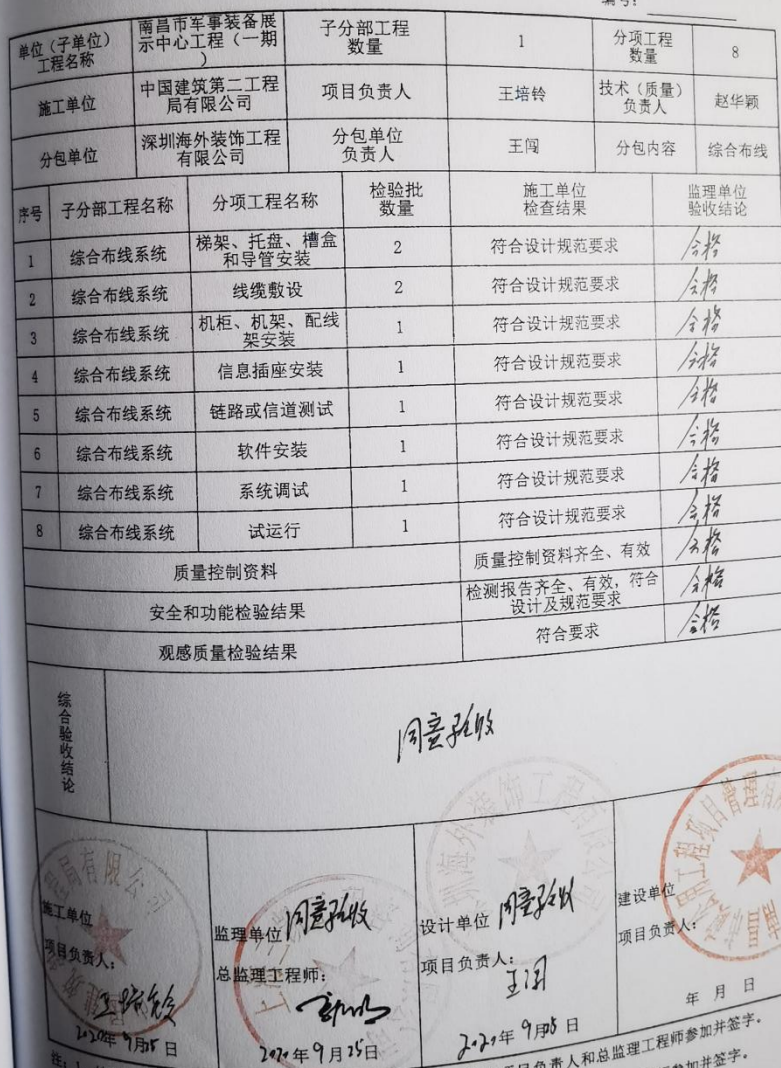 编号：
单位（子单位）工程名称 南昌市军事装备展示中心工程（一期） 子分部工程数量 1 分项工程数量 8
施工单位 中国建筑第二工程局有限公司 项目负责人 王培铃 技术（质量）负责人 赵华颖
分包单位 深圳海外装饰工程有限公司 分包单位负责人 王闯 分包内容 综合布线
序号 子分部工程名称 分项工程名称 检验批数量 施工单位检查结果 监理单位验收结论
1 综合布线系统 梯架、托盘、槽盒和导管安装 2 符合设计规范要求 合格
2 综合布线系统 线缆敷设 2 符合设计规范要求 合格
3 综合布线系统 机柜、机架、配线架安装 1 符合设计规范要求 合格
4 综合布线系统 信息插座安装 1 符合设计规范要求 合格
5 综合布线系统 链路或信道测试 1 符合设计规范要求 合格
6 综合布线系统 软件安装 1 符合设计规范要求 合格
7 综合布线系统 系统调试 1 符合设计规范要求 合格
8 综合布线系统 试运行 1 符合设计规范要求 合格
质量控制资料 质量控制资料齐全、有效 合格
安全和功能检验结果 检测报告齐全、有效，符合设计及规范要求 合格
观感质量检验结果 符合要求 合格
综合验收结论 同意验收
施工单位 监理单位 同意验收 设计单位 同意验收 建设单位
项目负责人： 总监理工程师： 项目负责人： 项目负责人：
王培铃 王闯
2020年9月25日 2020年9月25日 2020年9月25日 年 月 日
局有限公司
海外装饰工程有限公司
工程项目管理有
注：1
目负责人和总监理工程师参加并签字。
参加并签字。